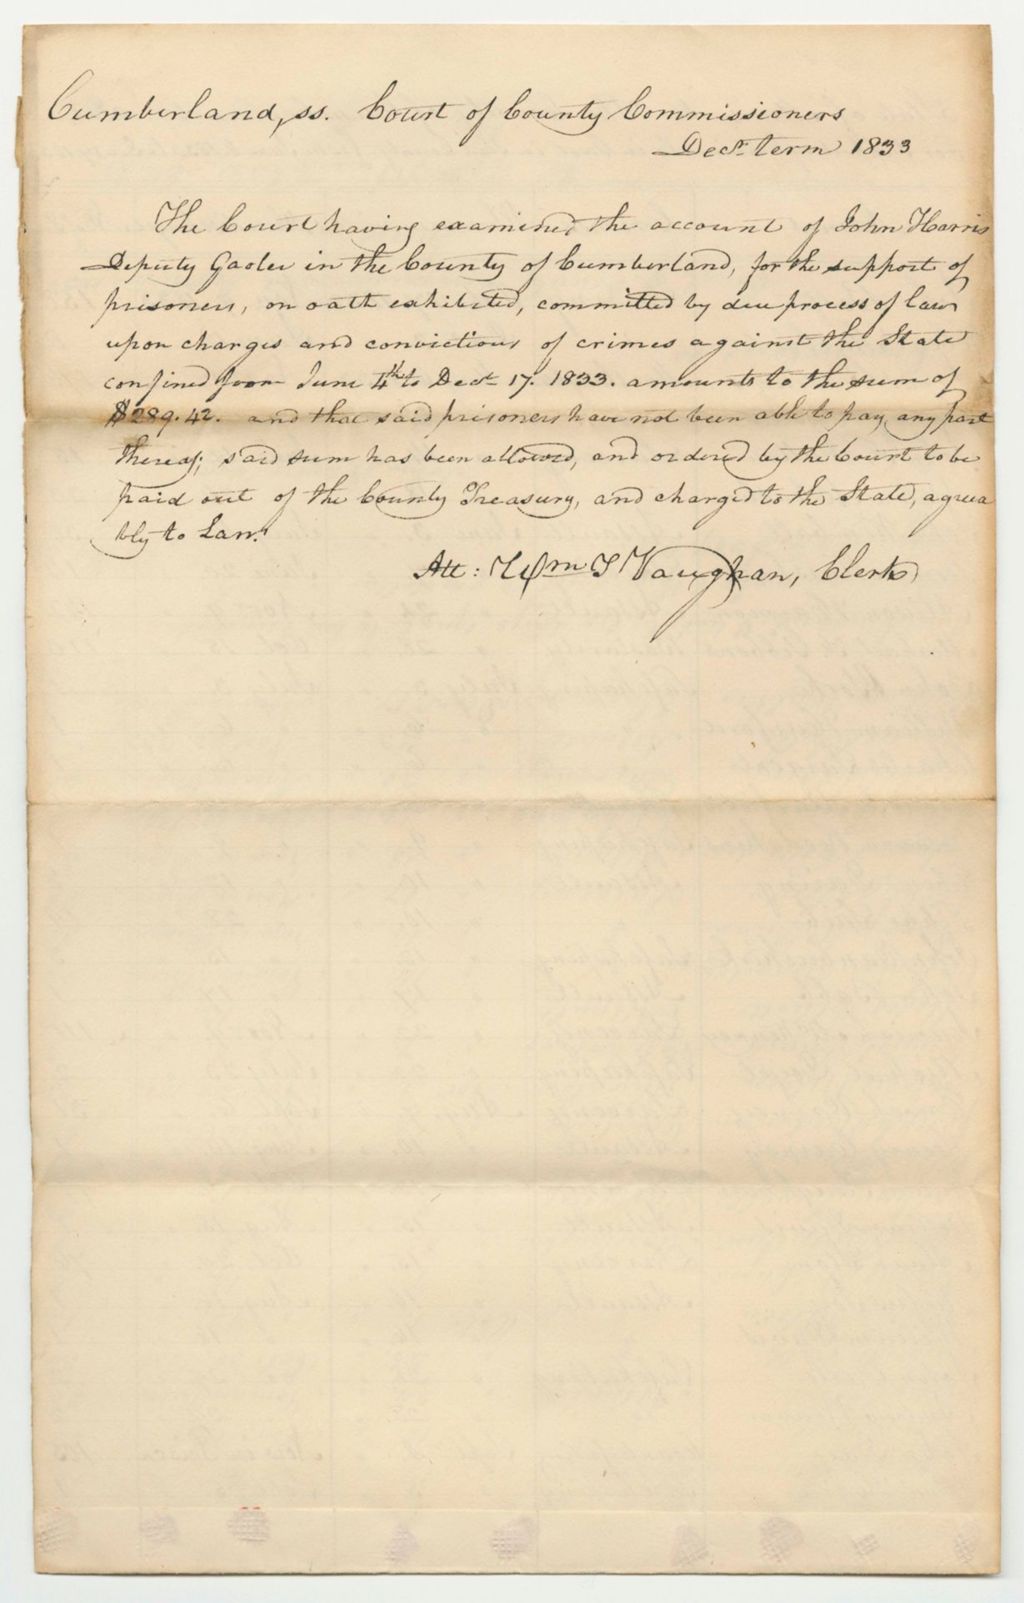 Cumberland, ss. Court of County Commissioners
Decr. term 1833
The Court having examined the account of John Harris
Deputy Gaoler in the County of Cumberland, for the support of
prisoners, on oath exhibited, committed by due process of law
upon charges and convictions of crimes against the State
confined from June 4th to Dect. 17. 1833. amounts to the sum of
$289.42. and that said prisoners have not been able to pay any part
thereof; said sum has been allowed, and ordered by the Court to be
paid out of the County Treasury, and charged to the State, agreea
bly to Law.
Att: Wm T Vaughan, Clerk